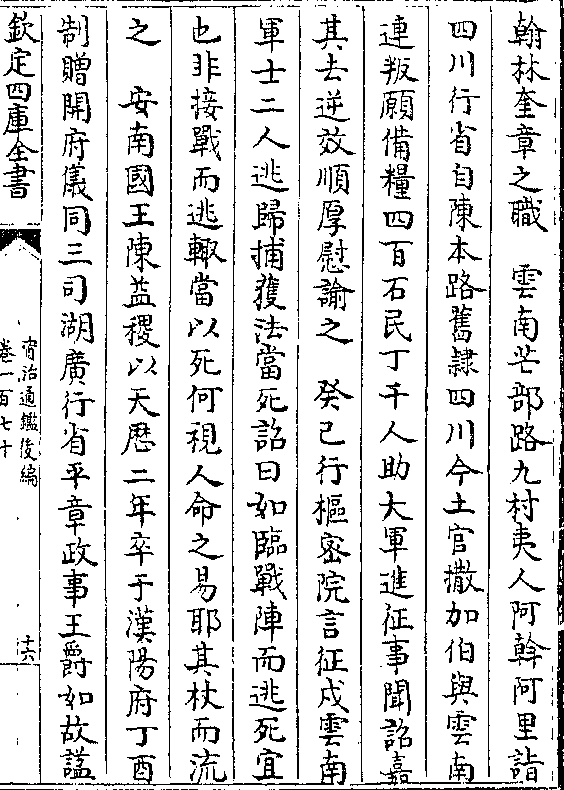 翰林奎章之職　雲南芒部路九村夷人阿斡阿里詣
四川行省自陳本路舊隸四川今土官撒加伯與雲南
連叛願備糧四百石民丁千人助大軍進征事聞詔嘉
其去逆效順厚慰諭之　癸巳行樞密院言征戍雲南
軍士二人逃歸捕獲法當死詔曰如臨戰陣而逃死宜
也非接戰而逃輒當以死何視人命之易耶其杖而流
之　安南國王陳益稷以天厯二年卒于漢陽府丁酉
制贈開府儀同三司湖廣行省平章政事王爵如故諡
欽定四庫全書
資治通鑑後編
卷一百七十
十六